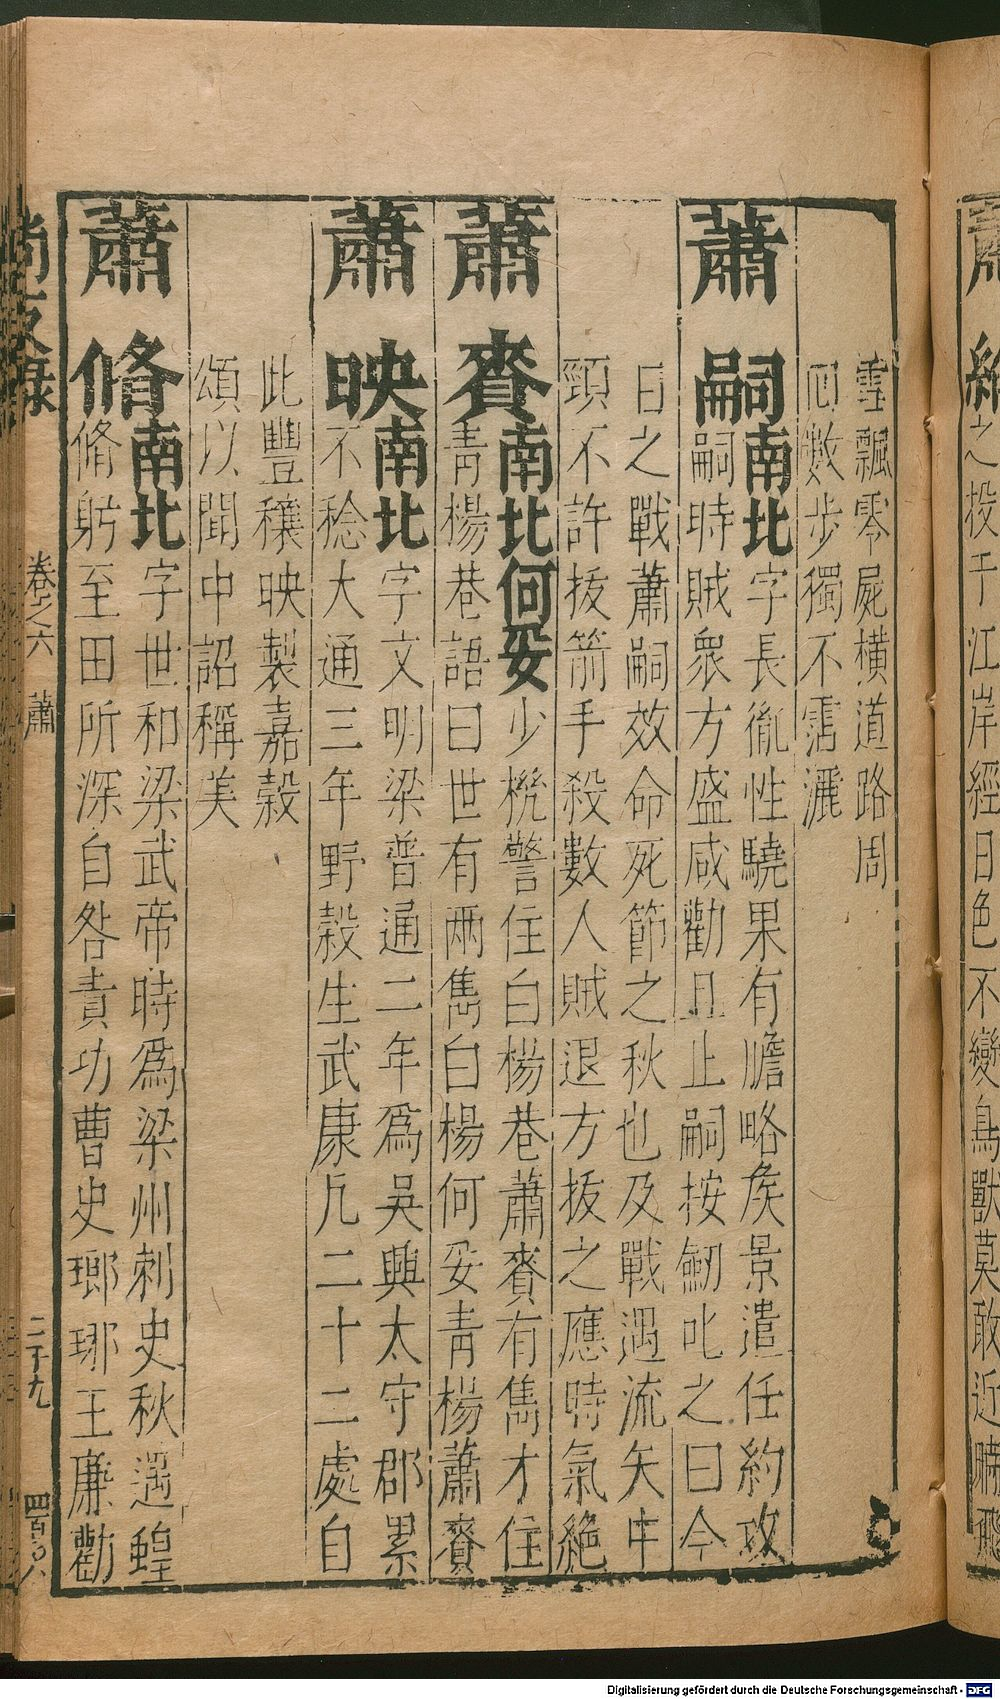 雪飄零屍橫道路周
回數步獨不霑灑
蕭嗣南北字長胤性驍果有膽略侯景遣任約攻
嗣時賊衆方盛咸勸且止嗣按劒叱之曰今
日之戰蕭嗣效命死節之秋也及戰遇流矢中
頸不許拔箭手殺數人賊退方拔之應時氣絕
蕭賚南北何妥少機警住白楊巷蕭賚有雋才住
青楊巷語曰世有兩雋白楊何妥青楊蕭賚
蕭映南北字文明梁普通二年爲吳興太守郡累
不稔大通三年野榖生武康凡二十二處自
此豐穰映製嘉榖
頌以聞中詔稱美
蕭脩南北字世和梁武帝時爲梁州刺史秋遇蝗
脩躬至田所深自咎責功曹史瑯琊王廉勸
尚友錄 卷之六 蕭 二十九 四百八
之投于江岸經日色不變鳥獸莫敢近
Digitalisierung gefördert durch die Deutsche Forschungsgemeinschaft - DFG